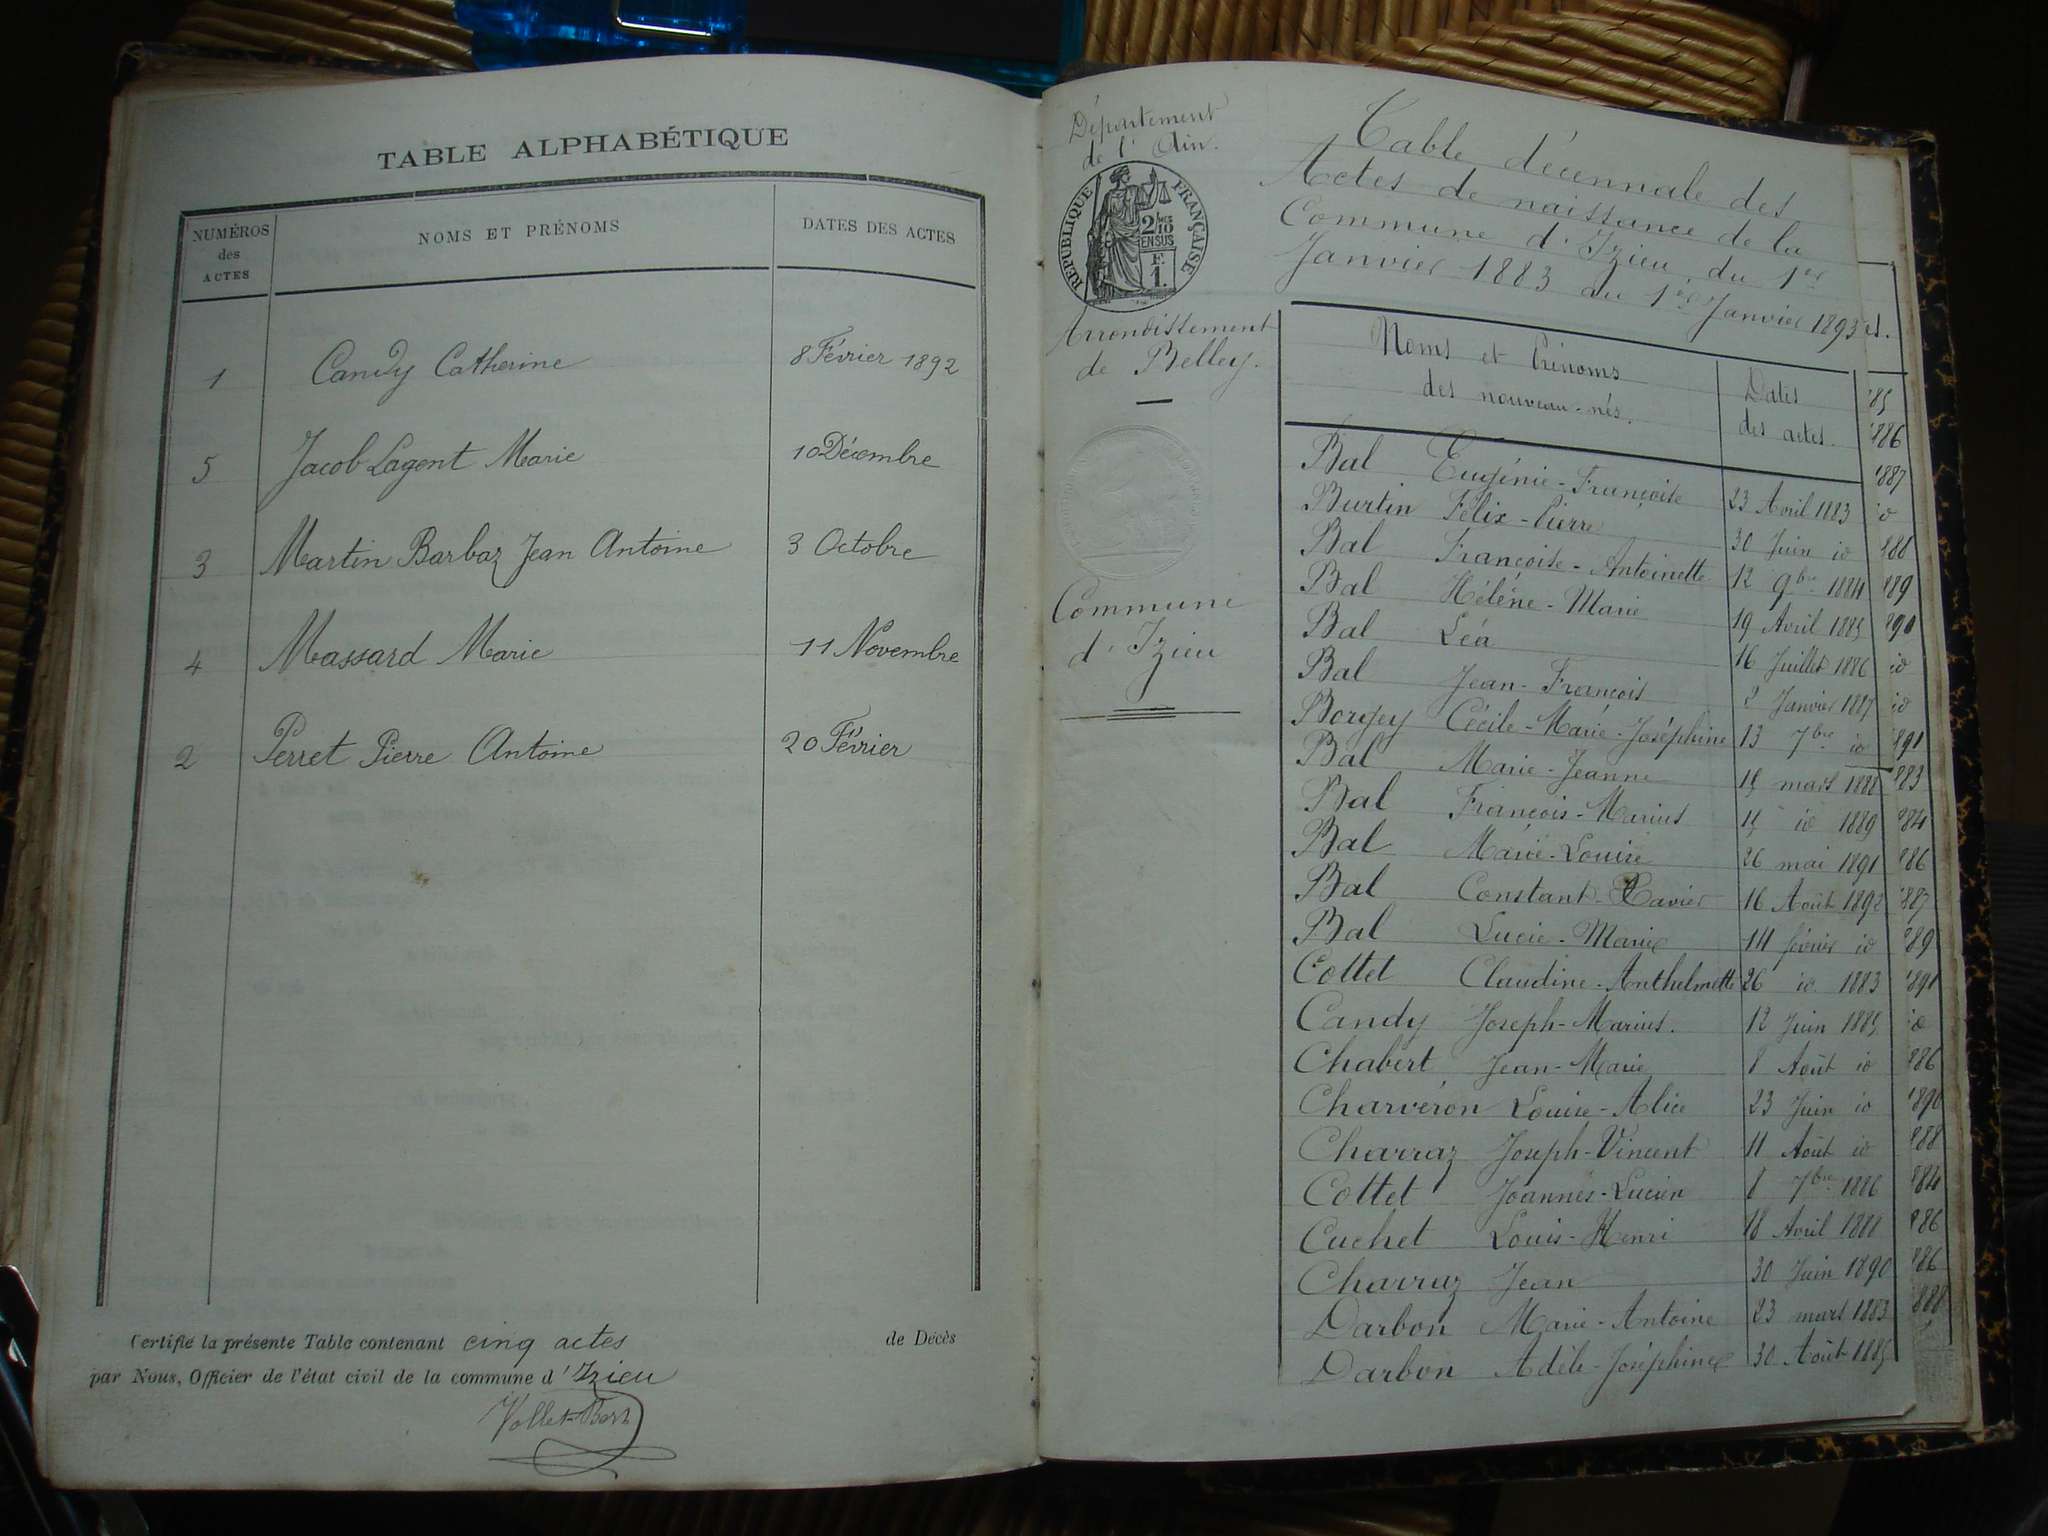 TABLE ALPHABÉTIQUE
NUMÉROS des ACTES
NOMS ET PRÉNOMS
DATES DES ACTES
1 Candy Catherine 8 Février 1892
5 Jacob Lagent Marie 10 Décembre
3 Martin Barbaz Jean Antoine 3 Octobre
4 Massard Marie 11 Novembre
2 Perret Pierre Antoine 20 Février
Certifié la présente Table contenant cinq actes de Décès
par Nous, Officier de l'état civil de la commune d'Izieu
Département
de l'Ain.
RÉPUBLIQUE FRANÇAISE
2/10
EN SUS
F.
1.
Arrondissement
de Belley.
Commune
d'Izieu
Table décennale des
Actes de naissance de la
Commune d'Izieu, du 1er
Janvier 1883 au 1er Janvier 1893
Noms et Prénoms
des nouveau-nés.
Dates
des actes.
Bal Eugénie-Françoise 23 Avril 1883
Burtin Félix-Pierre 30 Juin id
Bal Françoise-Antoinette 12 9bre 1884
Bal Hélène-Marie 19 Avril 1885
Bal Léa 16 Juillet 1886
Bal Jean-François 2 Janvier 1887
Borgey Cécile-Marie-Joséphine 13 7bre id
Bal Marie-Jeanne mars 1888
Bal François-Marius id 1889
Bal Marie-Louise 26 mai 1891
Bal Constant-Xavier 16 Août 1892
Bal Lucie-Marie 14 février id
Cottet Claudine-Anthelmette 26 id 1883
Candy Joseph-Marius. 12 Juin 1885
Chabert Jean-Marie 8 Août id
Charvéron Louise-Alice 23 Juin id
Charraz Joseph-Vincent 11 Août id
Cottet Joannès-Lucien 8 7bre 1886
Cuchet Louis-Henri 18 Avril 1888
Charruz Jean 30 Juin 1890
Darbon Marie-Antoine 23 mars 1883
Darbon Adèle-Joséphine 30 Août 1885